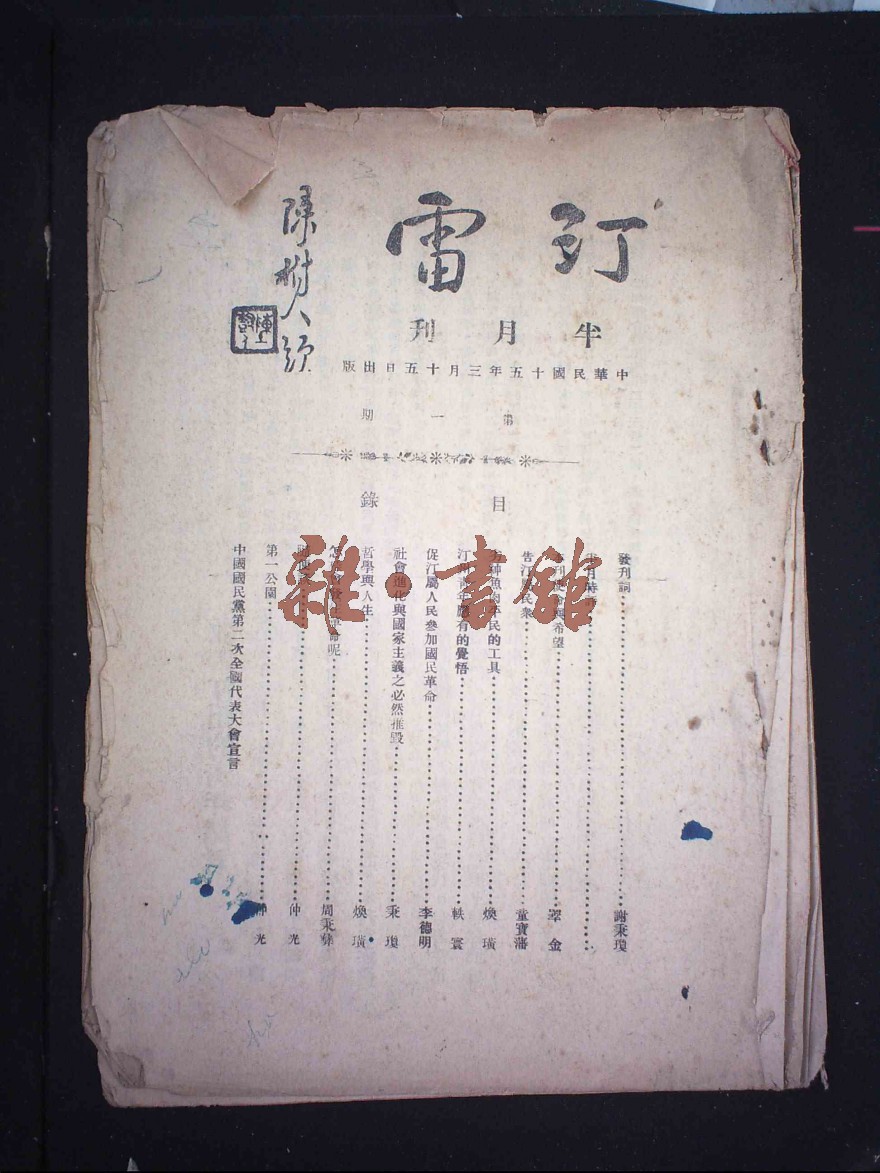 汀雷
陳樹人題
半月刊
中華民國十五年三月十五日出版
第一期
目錄
發刊詞 謝秉瓊
半月時
刊 希望 翠金
告汀 民衆 童寶藩
紳魚肉平民的工具 煥璜
汀 青年應有的覺悟 軼寰
促汀屬人民參加國民革命 李德明
社會進化與國家主義之必然摧毀 秉瓊
哲學與人生 煥璜
怎 革命呢 周秉彝
仲光
第一公園 仲光
中國國民黨第二次全國代表大會宣言
雜·書館